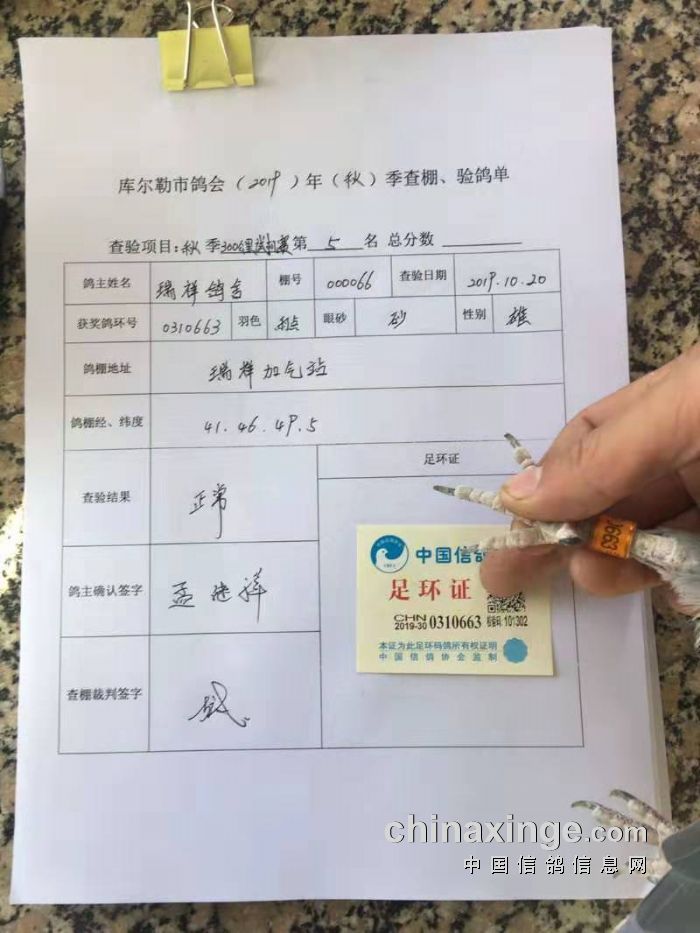 库尔勒市鸽会（2019）年（秋）季查棚、验鸽单
查验项目：秋季300公里 赛第 5 名 总分数
鸽主姓名 瑞祥鸽舍 棚号 000066 查验日期 2019.10.20
获奖鸽环号 0310663 羽色 眼砂 砂 性别 雄
鸽棚地址 瑞祥加气站
鸽棚经、纬度 41.46.49.5
足环证
查验结果 正常
中国信鸽
足环证
CHN
2019-30 0310663 校验码 101302
本证为此足环码鸽所有权证明
中国信鸽协会监制
0663
鸽主确认签字 孟 祥
查棚裁判签字
chinaxinge.com
中国信鸽信息网